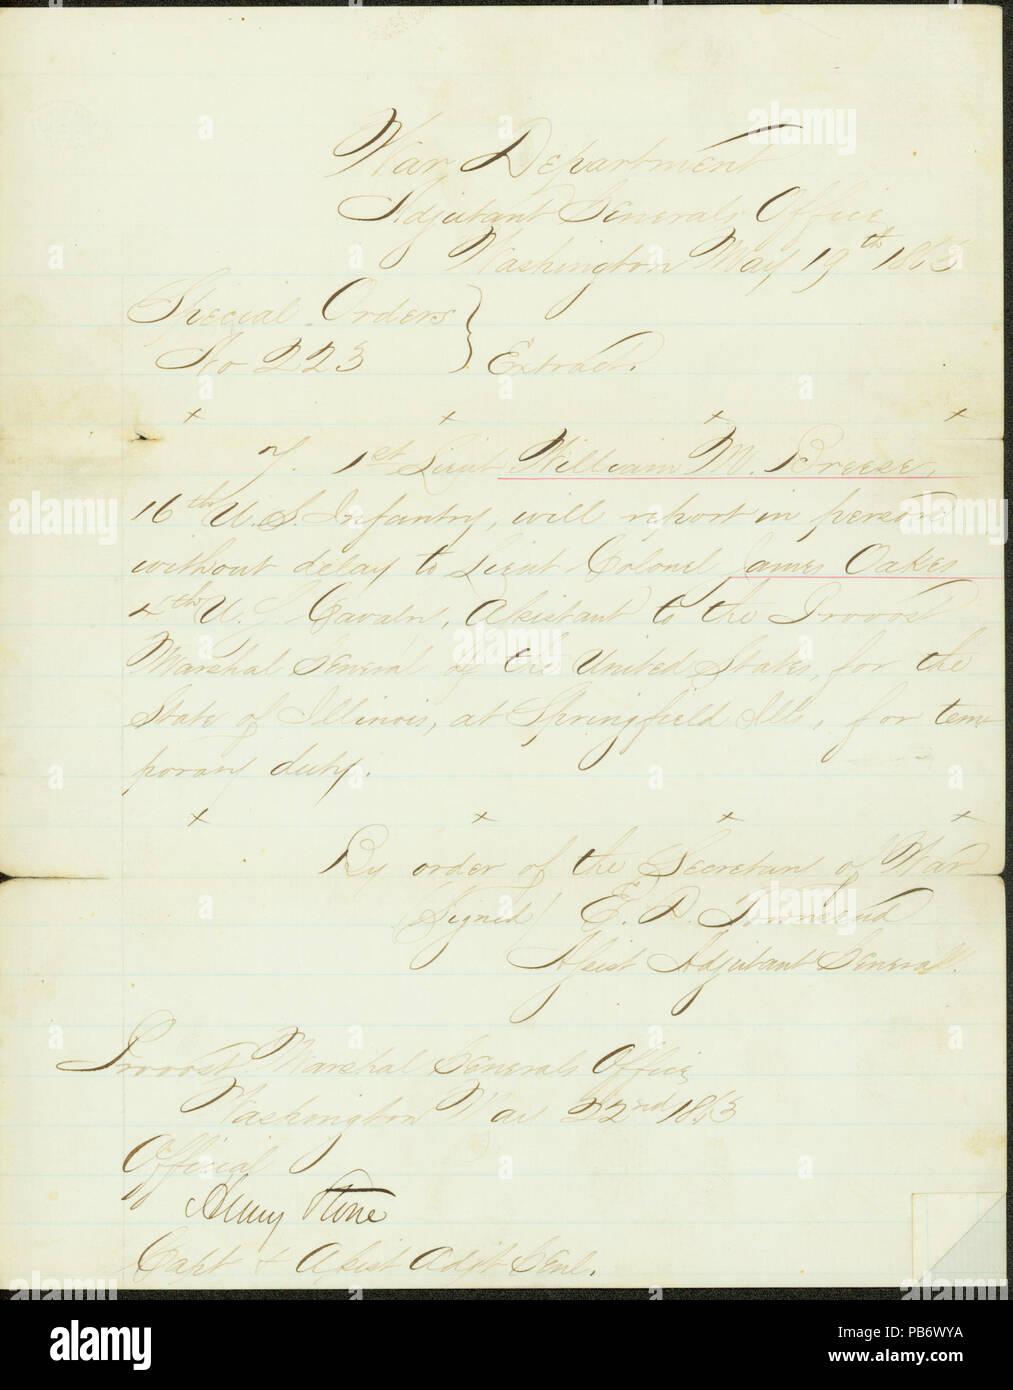 War Department
Adjutant Generals Office
Washington May 19th 1863
Special Orders
No 223 } Extract.
x x x x
7. 1st Lieut William M. Breese,
16th U.S. Infantry, will report in person
without delay to Lieut Colonel James Oakes
4th U.S. Cavalry, Assistant to the Provost
Marshal General of the United States, for the
State of Illinois, at Springfield Ills, for tem-
porary duty.
x x x x
By order of the Secretary of War
(Signed) E. D. Townsend
Assist Adjutant General.
Provost Marshal Generals Office
Washington May 22nd 1863
Official
Henry Stone
Capt & Assist Adjt Genl.
alamy
alamy
alamy
alamy
alamy
PB6WYA
www.alamy.com